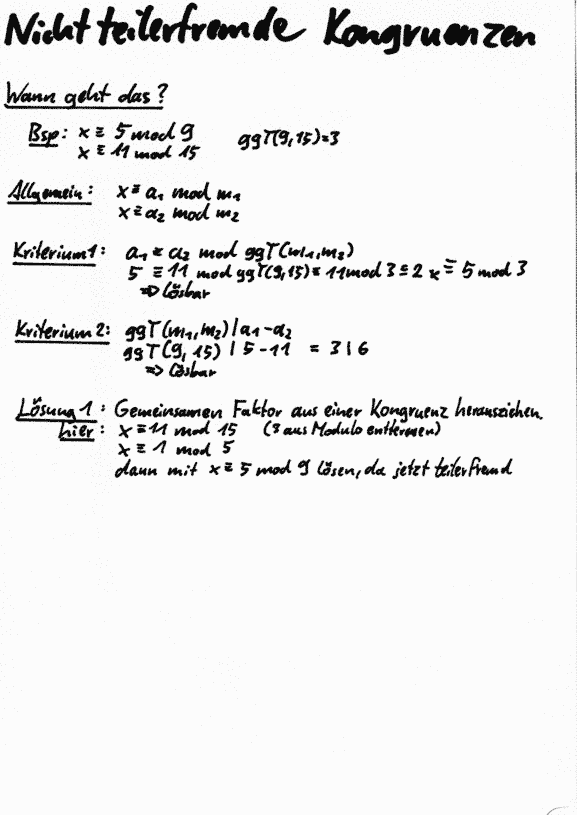 Nicht teilerfremde Kongruenzen
Wann geht das?
Bsp: x ≡ 5 mod 9 ggT(9,15)=3
x ≡ 11 mod 15
Allgemein: x ≡ a₁ mod m₁
x ≡ a₂ mod m₂
Kriterium 1: a₁ ≡ a₂ mod ggT(m₁,m₂)
5 ≡ 11 mod ggT(9,15) ≡ 11 mod 3 ≡ 2 x ≡ 5 mod 3
=> lösbar
Kriterium 2: ggT(m₁,m₂) | a₁-a₂
ggT(9, 15) | 5-11 = 3 | 6
=> lösbar
Lösung 1: Gemeinsamen Faktor aus einer Kongruenz herausziehen.
hier: x ≡ 11 mod 15 (3 aus Modulo entfernen)
x ≡ 1 mod 5
dann mit x ≡ 5 mod 9 lösen, da jetzt teilerfremd